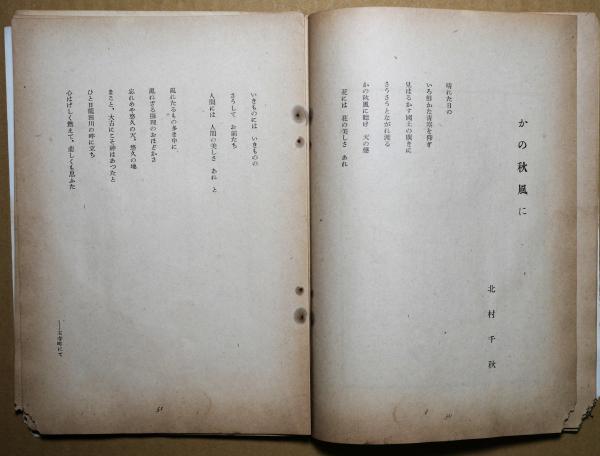 かの秋風に
北村千秋
晴れた日の
いろ鮮かた青空を仰ぎ
見はるかす國土の廣きに
さうさうとながれ渡る
かの秋風に聽け 天の聲
花には 花の美しさ あれ
いきものには いきものの
さうして お前たち
人間には 人間の美しさ あれ と
亂れたるもの多き中に
亂れざる攝理のおほどかさ
忘れめや悠久の天、悠久の地
まさと、大古にこそ神はあつたと
ひと日龍田川の畔に立ち
心はげしく燃えて、悲しくも思ふた
にて
50
51